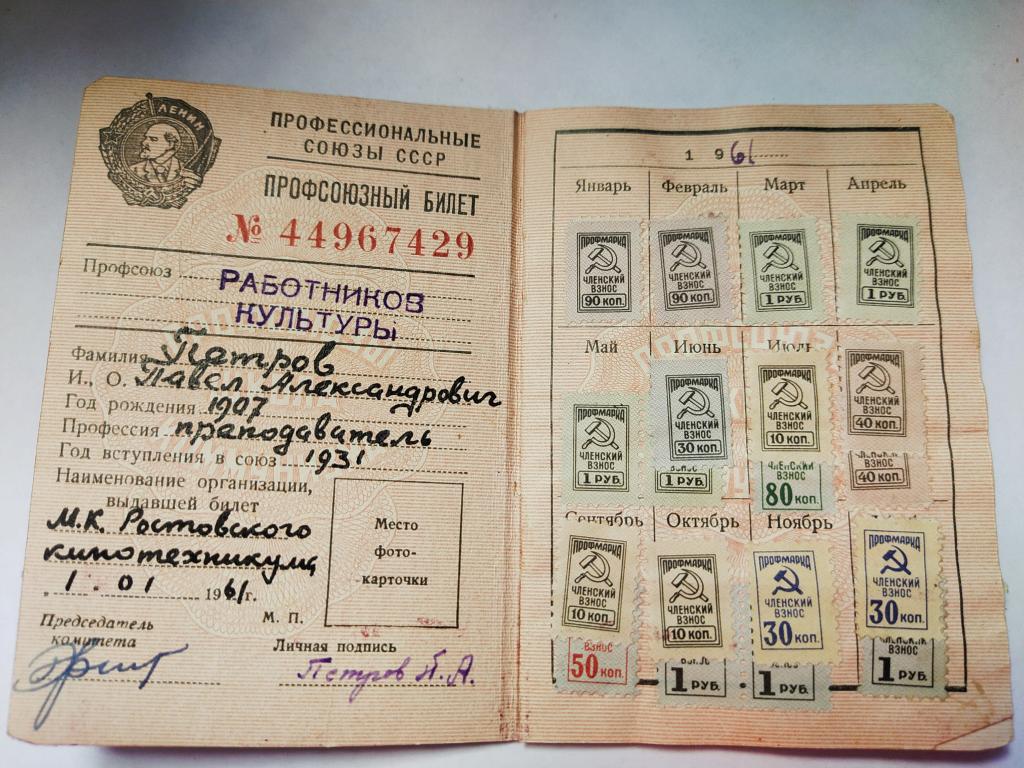 ЛЕНИН
ПРОФЕССИОНАЛЬНЫЕ
СОЮЗЫ СССР
ПРОФСОЮЗНЫЙ БИЛЕТ
№ 44967429
Профсоюз
РАБОТНИКОВ
КУЛЬТУРЫ
Фамилия Петров
И., О. Павел Александрович
Год рождения 1907
Профессия преподаватель
Год вступления в союз 1931
Наименование организации,
выдавшей билет
М.К. Ростовского
кинотехникума
„ 1 " 01 1961 г.
Место
фото-
карточки
М. П.
Председатель
комитета
Личная подпись
Петров П. А.
1961
Январь Февраль Март Апрель
ПРОФМАРКА ПРОФМАРКА ПРОФМАРКА ПРОФМАРКА
ЧЛЕНСКИЙ ЧЛЕНСКИЙ ЧЛЕНСКИЙ ЧЛЕНСКИЙ
ВЗНОС ВЗНОС ВЗНОС ВЗНОС
90 КОП. 90 КОП. 1 РУБ. 1 РУБ.
Май Июнь Июль
ПРОФМАРКА ПРОФМАРКА ПРОФМАРКА ПРОФМАРКА
ЧЛЕНСКИЙ ЧЛЕНСКИЙ ЧЛЕНСКИЙ ЧЛЕНСКИЙ
ВЗНОС ВЗНОС ВЗНОС ВЗНОС
1 РУБ. 30 КОП. 10 КОП. 40 КОП.
ВЗНОС ЧЛЕНСКИЙ ВЗНОС
ВЗНОС
1 РУБ. 80 КОП. 40 КОП.
Сентябрь Октябрь Ноябрь
ПРОФМАРКА ПРОФМАРКА ПРОФМАРКА ПРОФМАРКА
ЧЛЕНСКИЙ ЧЛЕНСКИЙ ЧЛЕНСКИЙ ЧЛЕНСКИЙ
ВЗНОС ВЗНОС ВЗНОС ВЗНОС
10 КОП. 10 КОП. 30 КОП. 30 КОП.
ВЗНОС ВЗНОС ВЗНОС ЧЛЕНСКИЙ
ВЗНОС
50 КОП. 1 РУБ. 1 РУБ. 1 РУБ.